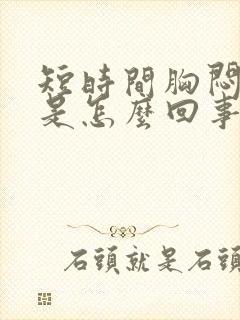 短時間胸悶
是怎麼回事
石頭就是石頭